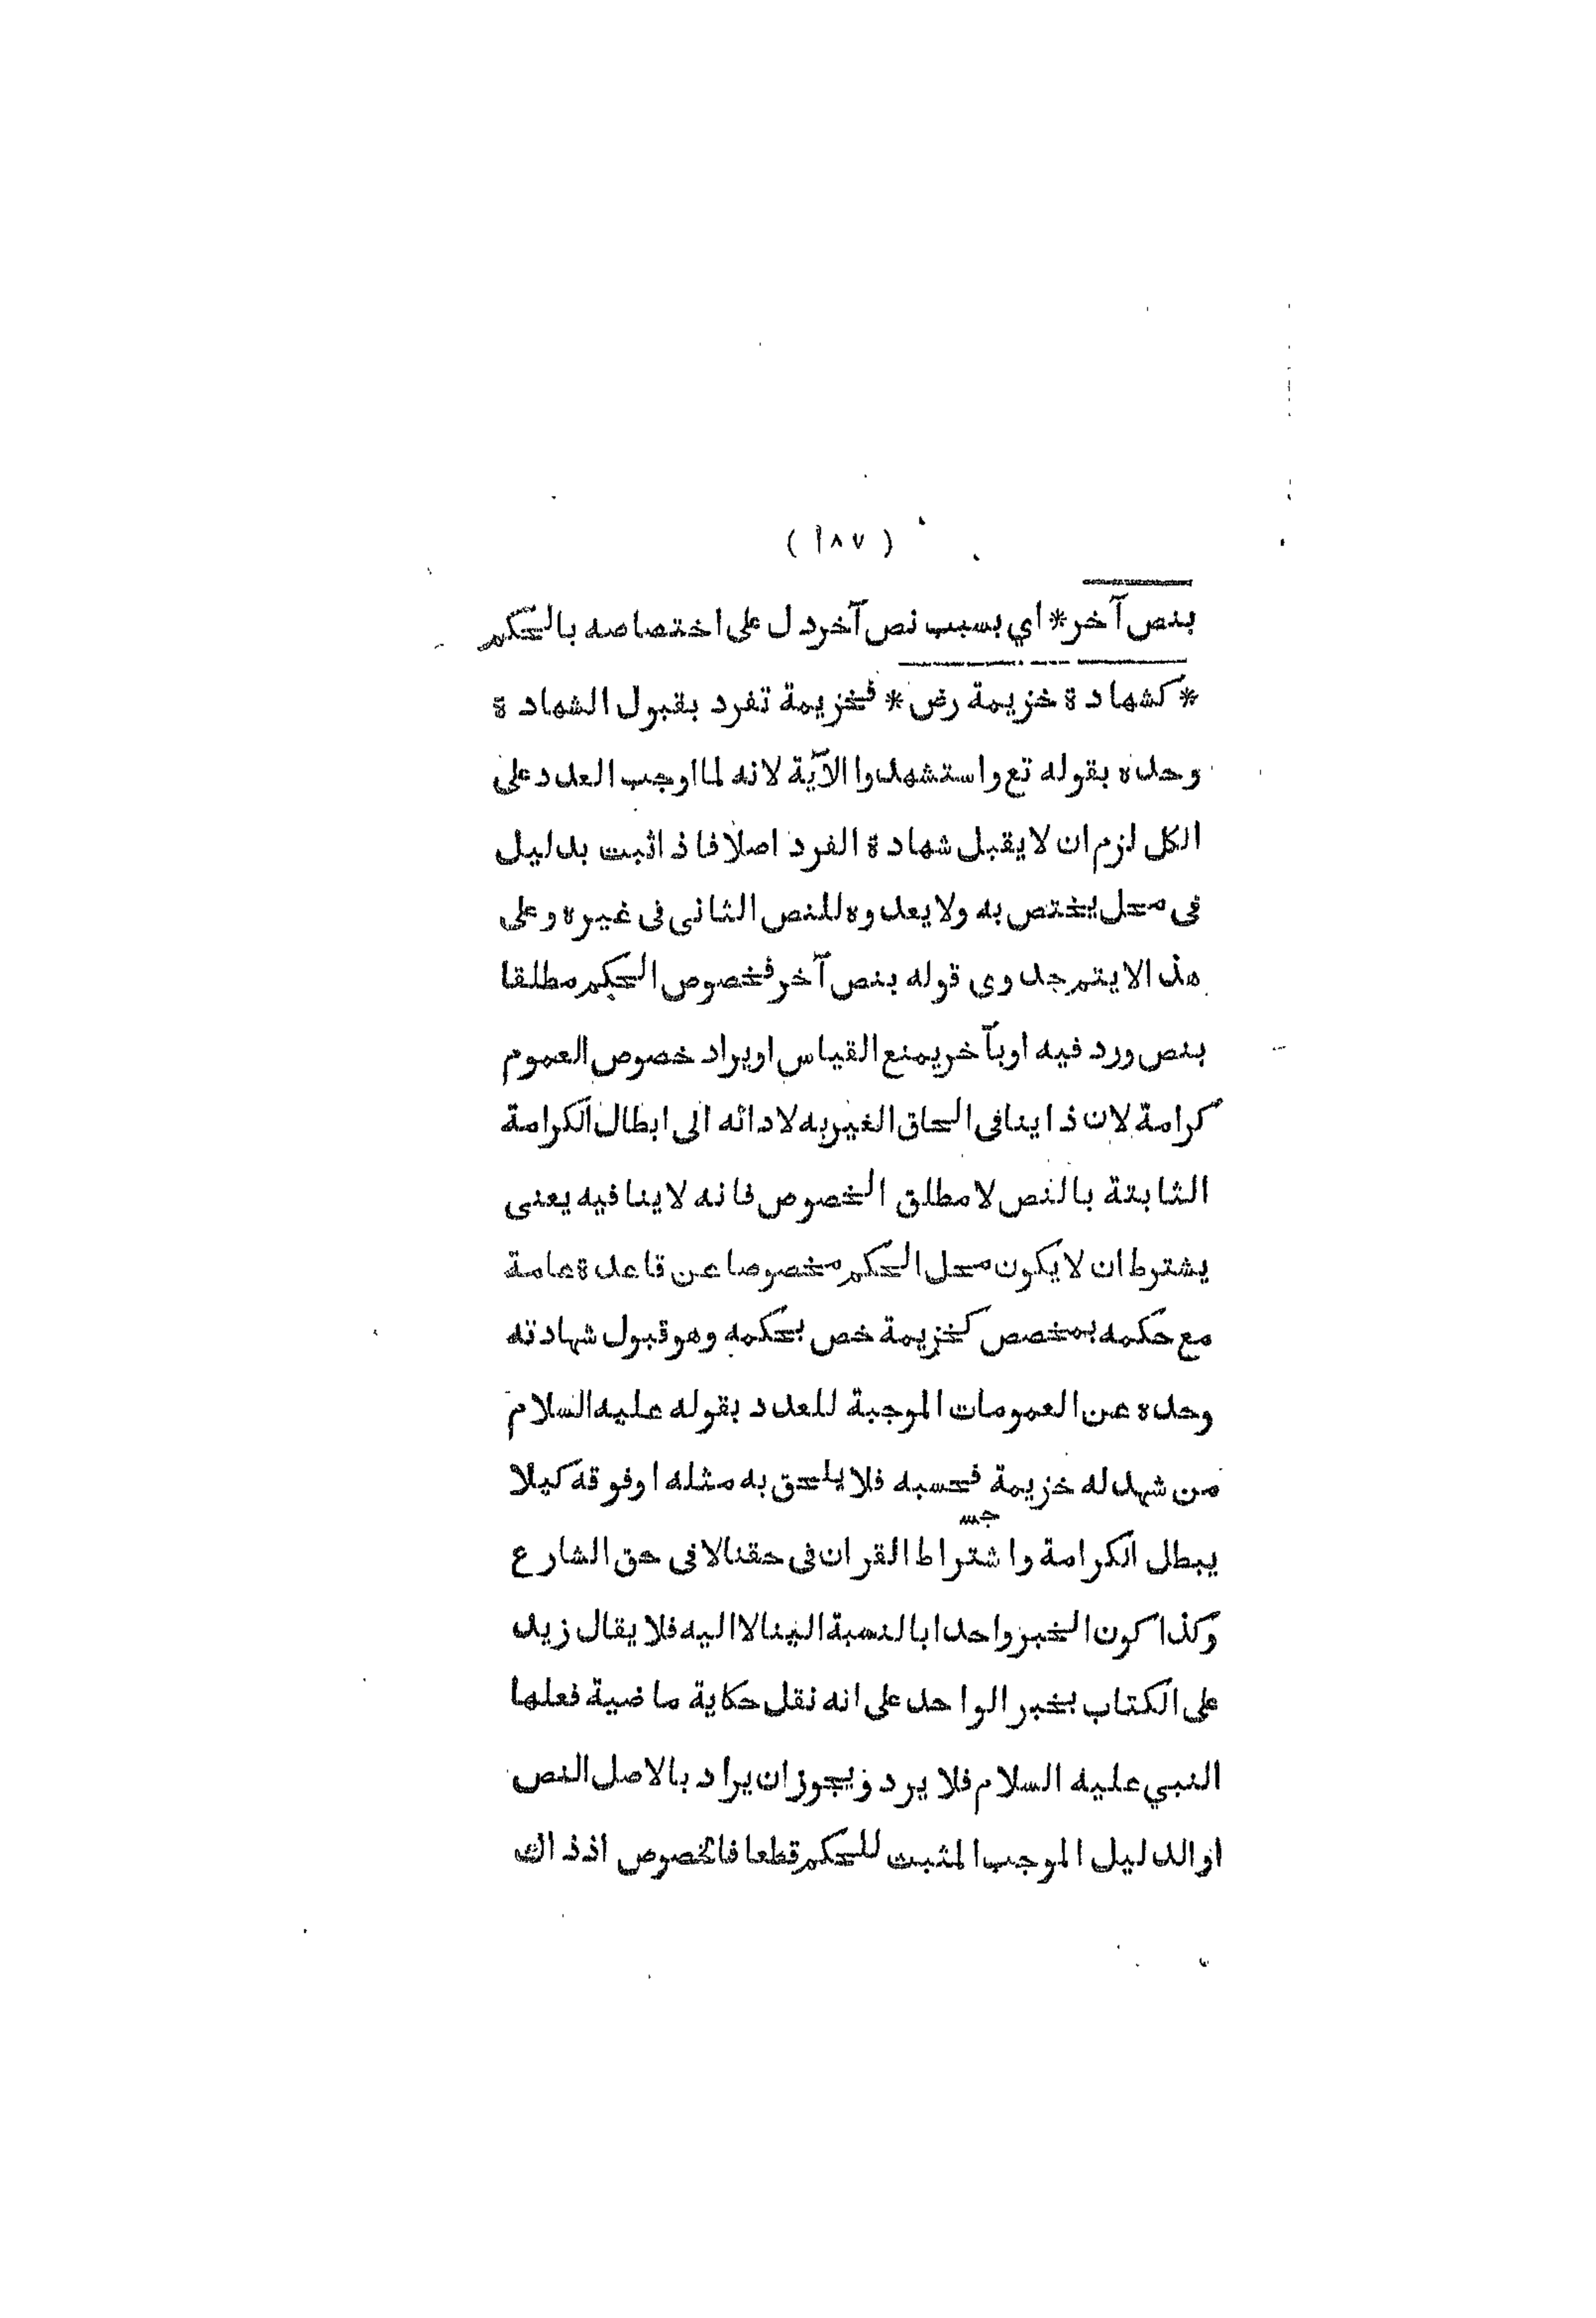 ( ١٨٧ )
بنص آخر * اي بسبب نص آخر دل على اختصاصه بالحكم
* كشهادة خزيمة رض * فخزيمة تفرد بقبول الشهادة
وحده بقوله تع واستشهدوا الآية لانه لما اوجب العدد على
الكل لزم ان لا يقبل شهادة الفرد اصلا فاذا ثبت بدليل
فى محل يختص به ولا يعدوه للنص الثانى فى غيره وعلى
هذا لا يتم جدوى قوله بنص آخر فخصوص الحكم مطلقا
بنص ورد فيه او بآخر يمنع القياس او يراد خصوص العموم
كرامة لان ذا ينافى الحاق الغير به لادائه الى ابطال الكرامة
الثابتة بالنص لا مطلق الخصوص فانه لا ينافيه يعنى
يشترط ان لا يكون محل الحكم مخصوصا عن قاعدة عامة
مع حكمه بمخصص كخزيمة خص بحكمه وهو قبول شهادته
وحده عن العمومات الموجبة للعدد بقوله عليه السلام
من شهد له خزيمة فحسبه فلا يلحق به مثله او فوقه كيلا
يبطل الكرامة واشتراط القران فى حقنا لا فى حق الشارع
وكذا كون الخبر واحدا بالنسبة الينا لا اليه فلا يقال زيد
على الكتاب بخبر الواحد على انه نقل حكاية ماضية فعلها
النبي عليه السلام فلا يرد ويجوز ان يراد بالاصل النص
او الدليل الموجب المثبت للحكم قطعا فالخصوص اذ ذاك